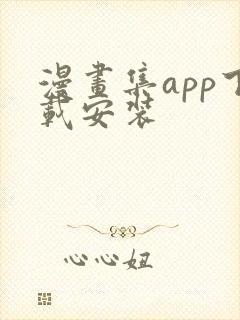 漫畫集app下
載安裝
心心妞